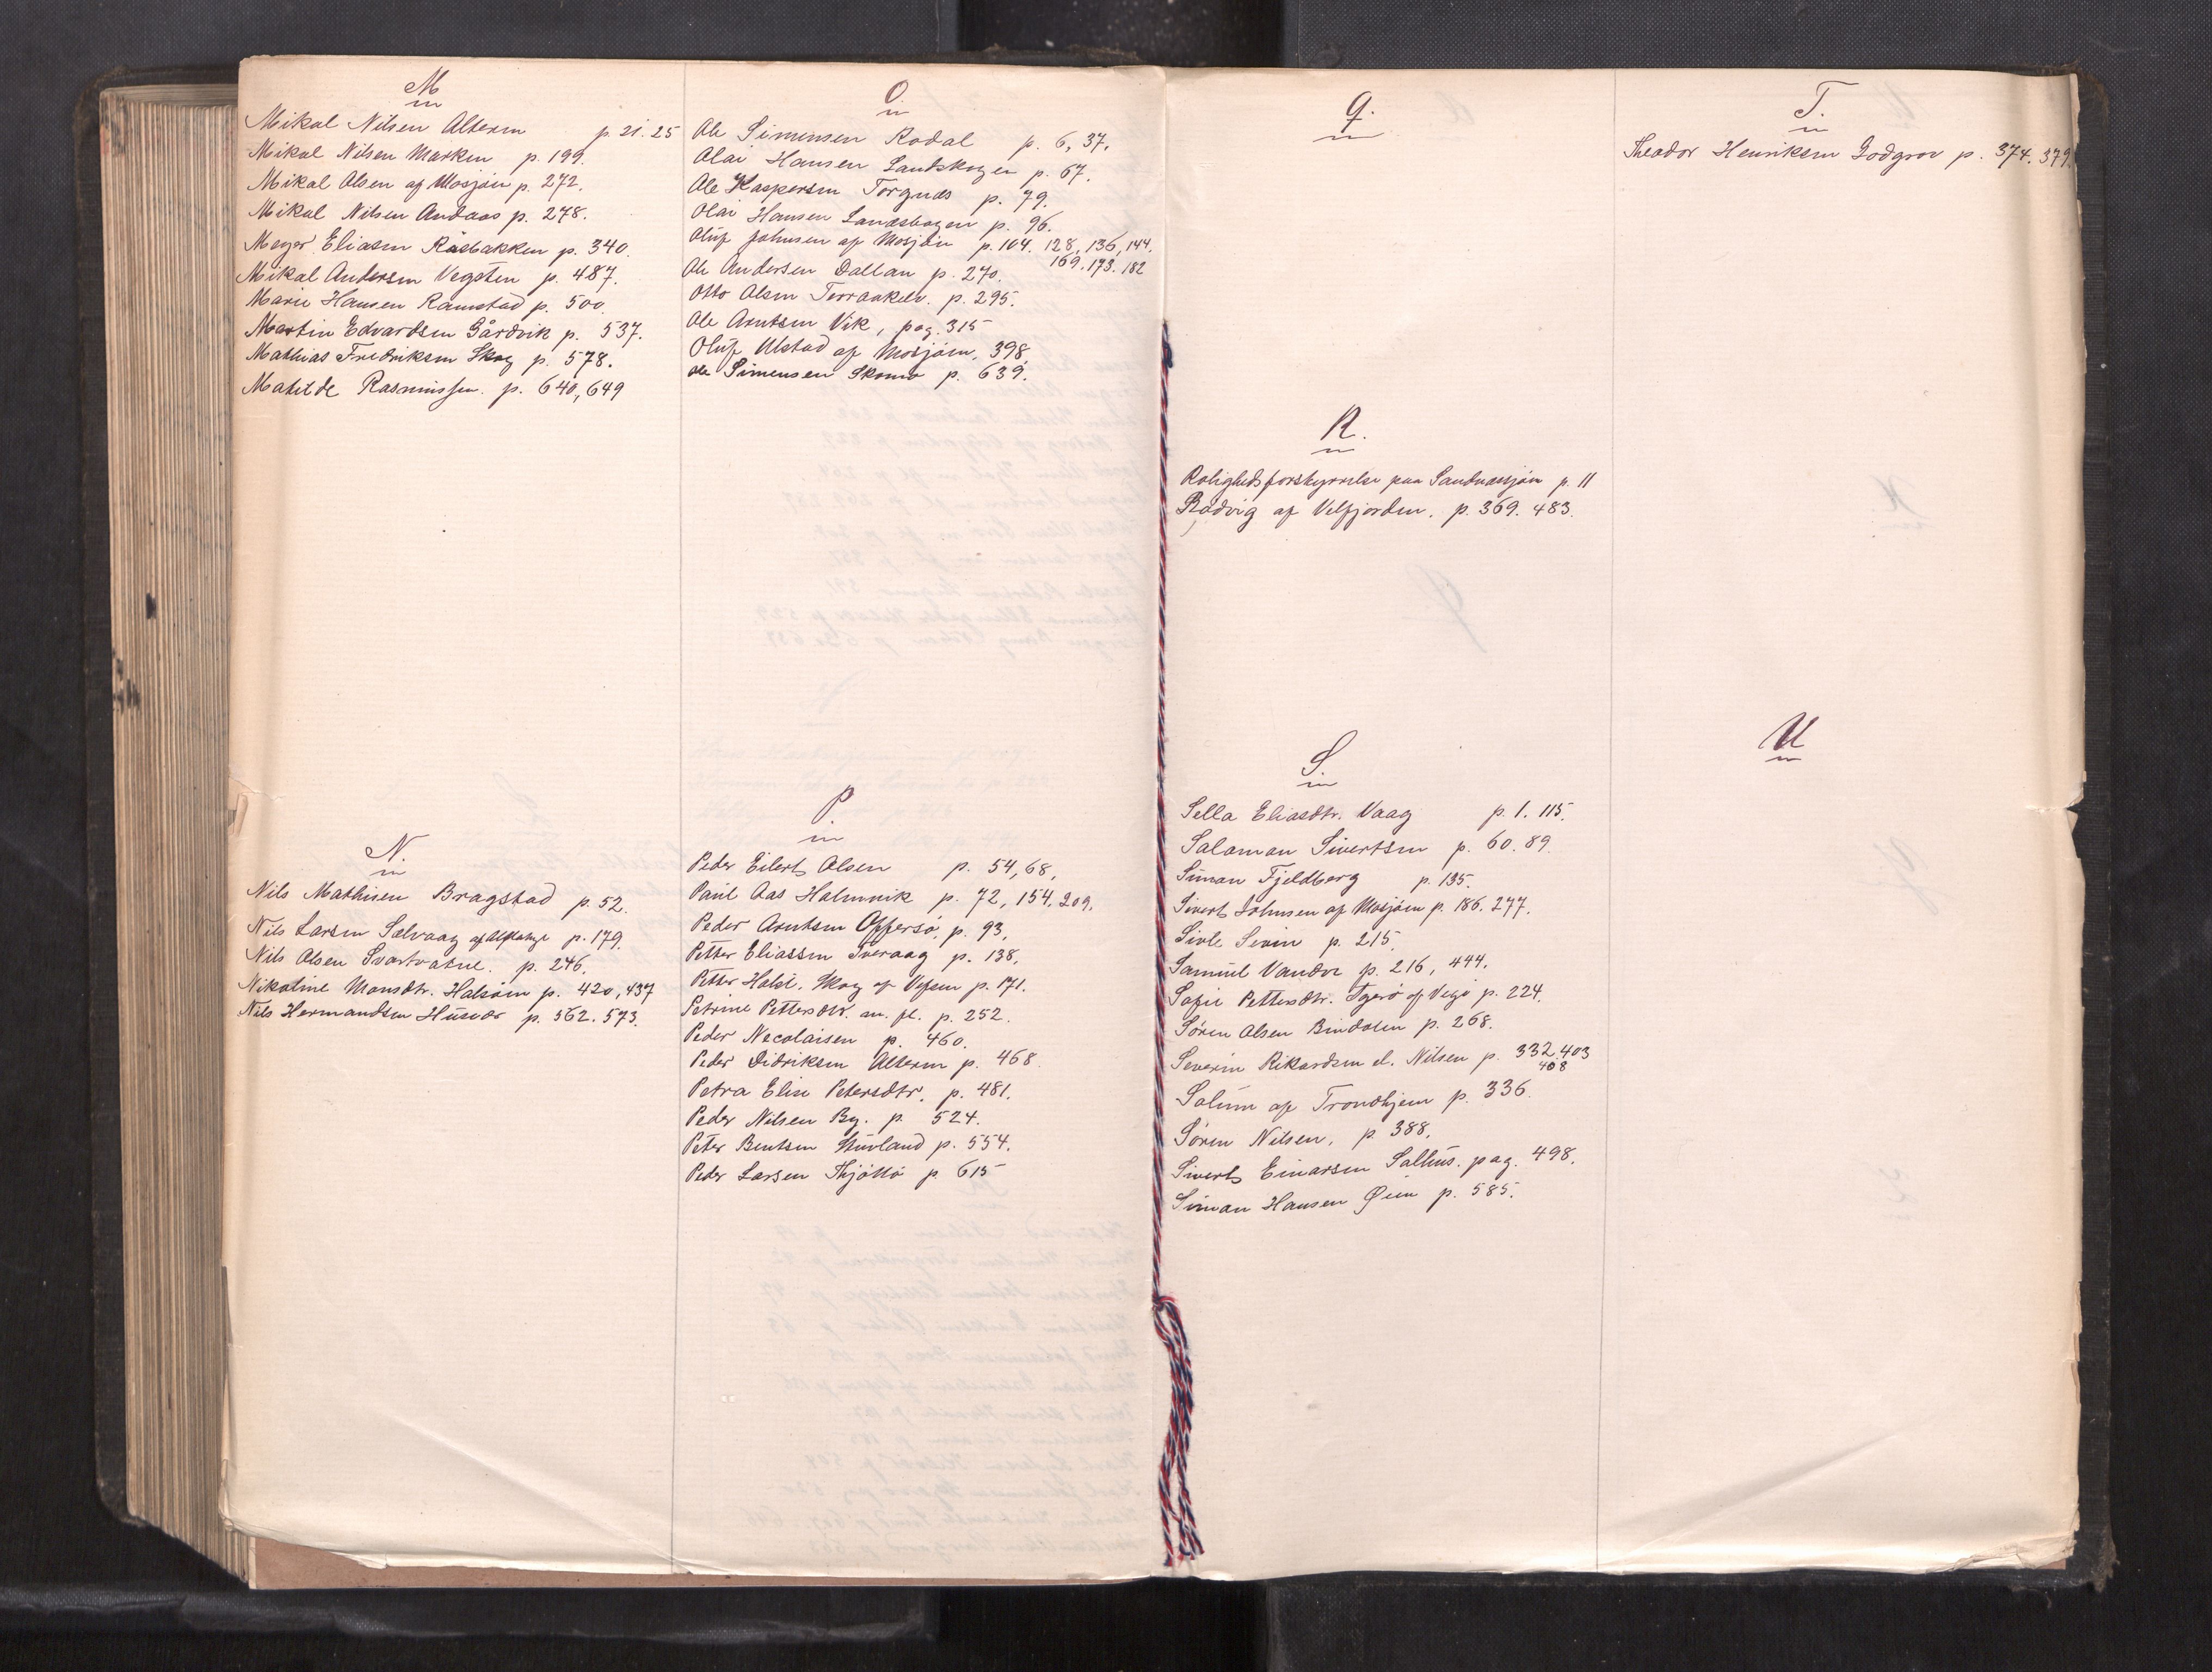 M
Mikal Nilsen Alteren p. 21. 25
Mikal Nilsen Marken p. 199.
Mikal Olsen af Mosjøen p. 272.
Mikal Nilsen Andaas p. 278.
Meyer Eliasen Råsbakken p. 340.
Mikal Andersen Vegsten p. 487.
Marie Hansen Ramstad p. 500.
Martin Edvardsen Gårdvik p. 537.
Mathias Fredriksen Skog p. 578.
Matilde Rasmussen. p. 640, 649
N.
Nils Mathisen Bragstad p. 52.
Nils Larsen Selvaag af p. 179.
Nils Olsen Svartvatne. p. 246.
Nikoline Monsdtr. Halsøen p. 420, 437
Nils Hermandsen Husvær p. 562. 573.
O
Ole Simensen Rodal p. 6, 37.
Olai Hansen Landskogen p. 67.
Ole Kaspersen Torgnæs p. 79.
Olai Hansen Landskogen p. 96.
Oluf Johnsen af Mosjøen p. 104. 128, 136, 144.
169. 173. 182
Ole Andersen Dallan p. 270.
Otto Olsen Terraakelv. p. 295.
Ole Arntsen Vik, pag. 315
Oluf Ulstad af Mosjøen, 398.
Ole Simensen Skomo p. 639.
P.
Peder Eilert Olsen p. 54, 68.
Paul Aas Holmvik p. 72, 154. 209.
Peder Arntsen Offersø. p. 93.
Petter Eliassen Tveraag p. 138.
Petter Halst. Skog af Vefsen p. 171.
Petrine Pettersdtr. m. fl. p. 252.
Peder Necolaisen p. 460.
Peder Didriksen Alteren p. 468.
Petra Elise Petersdtr. p. 481.
Peder Nilsen By. p. 524.
Peter Bentsen Stuvland p. 554.
Peder Larsen Thjøttø p. 615
Q.
R.
Rolighedsforstyrrelse paa Sandnessjøen p. 11
Rodvig af Velfjorden. p. 369. 483.
S.
Sella Eliasdtr. Vaag p. 1. 115.
Salamon Sivertsen p. 60. 89.
Simon Fjeldberg p. 135.
Sivert Johnsen af Mosjøen p. 186. 277.
Sivle Sevin p. 215.
Samuel Vandve p. 216, 444.
Sofie Pettersdtr. Igerø af Vegø p. 224.
Søren Olsen Bindalen p. 268.
Severin Rikardsen el. Nilsen p. 332. 403
408
Solum af Trondhjem p. 336.
Søren Nilsen. p. 388.
Sivert Einarsen Salhus. pag. 498.
Simon Hansen Øien p. 585.
T.
Theodor Henriksen Godgrov p. 374. 379.
U